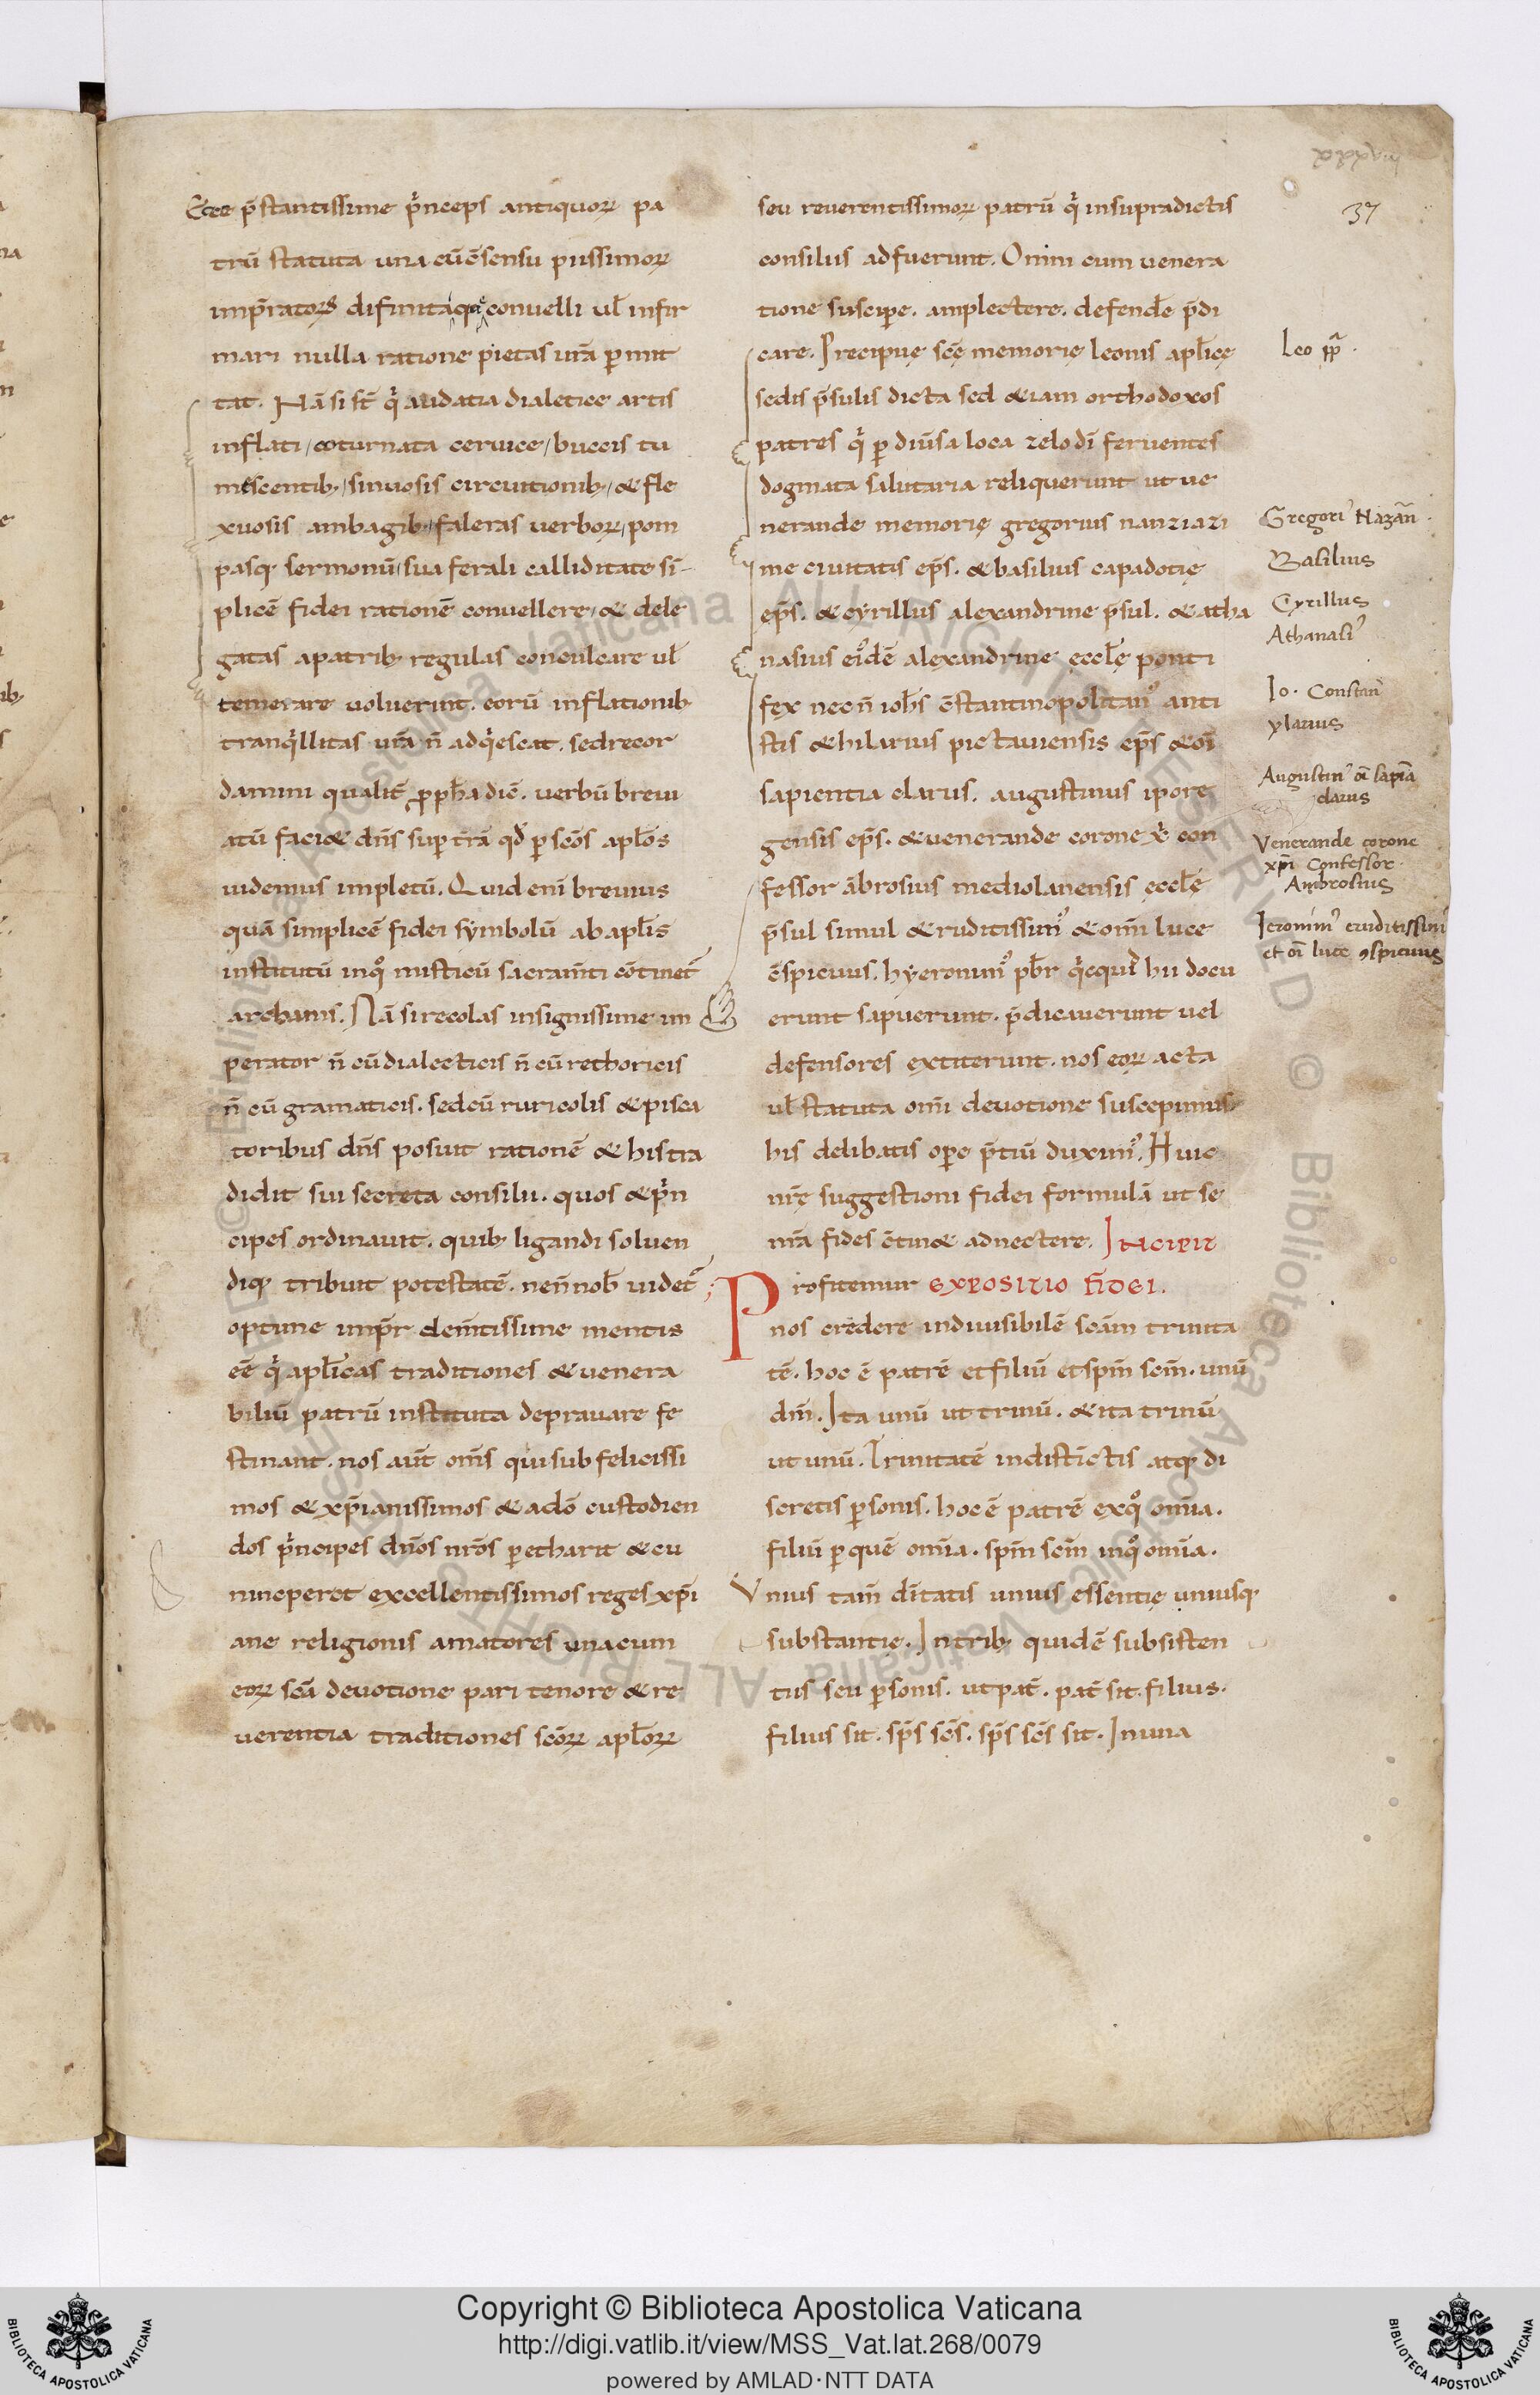 Ecce p̄stantissime p̓nceps antiquoꝝ pa
trū statuta una cū c̄sensu piissimoꝝ
imp̄ratoꝝ difinita q̨ convelli vl̄ infir
mari nulla ratione pietas ur̄a ꝑmit
tat. Nā si st̄ q̓ audatia dialetice artis
inflati, coturnata cervice, buccis tu
mescentib; sinuosis circuitionib; & fle
xuosis ambagib; faleras verboꝝ, pom
pasq; sermonū, sua ferali calliditate si
plicē fidei rationē convellere, & dele
gatas apatrib; regulas conculcare ul̄
temerare voluerint. eorū inflationib;
tranq̓llitas ur̄a n̄ adq̓escat. sed recor
damini qualit̄ ꝓpph̄a dic̄. verbū brevi
atū faci& dn̄s suꝑ tr̄a qd̄ ꝑ scōs apl̄os
videmus impletū. Quid eni brevius
quā simplicē fidei sẏmbolū ab apl̄is
institutū inq̊ misticū sacram̄ti cōtinet̄
archanis. Nā si recolas insignissime im
perator n̄ cū dialecticis n̄ cū rethoricis
n̄ cū gramaticis. sed cū ruricolis & pisca
toribus dn̄s posuit rationē & his tra
didit sui secreta consilii. quos & p̓n
cipes ordinavit. quib; ligandi solven
diq; tribuit potestatē. ne n̄ nob̄ videt̄
optime imp̄r dem̄tissime mentis
eē q̓ apl̄icas traditiones & venera
biliū patrū instituta depravare fe
stinant. nos aut̄ om̄s qui sub felicissi
mos & xp̄ianissimos & adō custodien
dos p̓ncipes dn̄os nr̄os ꝑctharit & cu
nincperet excellentissimos reges xp̄i
ane religionis amatores una cum
eoꝝ scā devotione pari tenore & re
verentia traditiones scōꝝ apl̄oꝝ
seu reverentissimoꝝ patrū q̓ insupradictis
consiliis adfuerunt. Omni cum venera
tione suscipe. amplectere. defende p̄di
care. Precipuę scē memorię leonis apl̄icę
sedis p̄sulis dicta sed &iam orthodoxos
patres q̓ ꝑ diūsa loca zelo dī ferventes
dogmata salutaria reliquerunt ut ve
nerande memorię gregorius nanziazi
ine civitatis ep̄s. & basilius capadocię
ep̄s. & cẏrillus alexandrine p̄sul. & atha
nasius ei̊dē alexandrine ęccl̄ę ponti
fex nec n̄ ioh̄s c̄stantinopolitan᾿ anti
stis & hilarius pictaviensis ep̄s & oī
sapientia clarus. augustinus ipore
gensis ep̄s. & venerande corone x̄ con
fessor ābrosius mediolanensis ęccl̄ę
p̄sul simul & ruditissim᾿ & omī luce
c̄spicuus. hẏeronim᾿ pb̄r q̓cq̓d hii docu
erunt sapuerunt. p̄dicaverunt vel
defensores extiterunt. nos eoꝝ acta
ul̄ statuta omī devotione suscepimus
his delibatis ope p̄tiū duxim᾿. Huic
nr̄ę suggestioni fidei formulā ut se
nr̄a fides c̄tin& adnectere. INCIPIT
Profitemur EXPOSITIO FIDEI.
nos credere indivisibilē scām trinita
tē. hoc ē patrē et filiū et spm̄ scm̄. unū
dm̄. Ita unū ut trinū. & ita trinū
ut unū. Trinitatē indistīctis atq; di
scretis ꝑsonis. hoc ē patrē ex q̊ omīa.
filiū ꝑ quē omīa. spm̄ scm̄ in q̊ omīa.
Unius tam̄ dītatis unius essentię uniusq;
substantię. In trib; quidē subsisten
tiis seu ꝑsonis. ut pat̄. pat̄ sit. filius.
filius sit. sp̄s sc̄s. sp̄s sc̄s sit. In una
37
Leo pp̄.
Gregori᾿ Nazān.
Basilius
Cyrillus
Athanasi᾿
Io. Constan
ylarius
Augustin᾿ oī sapīa
clarus
Venerande corone
xp̄i Confessor.
Ambrosius
Ieronim᾿ eruditissim᾿
et oī luce ꝯspicuus
Copyright © Biblioteca Apostolica Vaticana
http://digi.vatlib.it/view/MSS_Vat.lat.268/0079
powered by AMLAD·NTT DATA
BIBLIOTECA APOSTOLICA VATICANA
BIBLIOTECA APOSTOLICA VATICANA